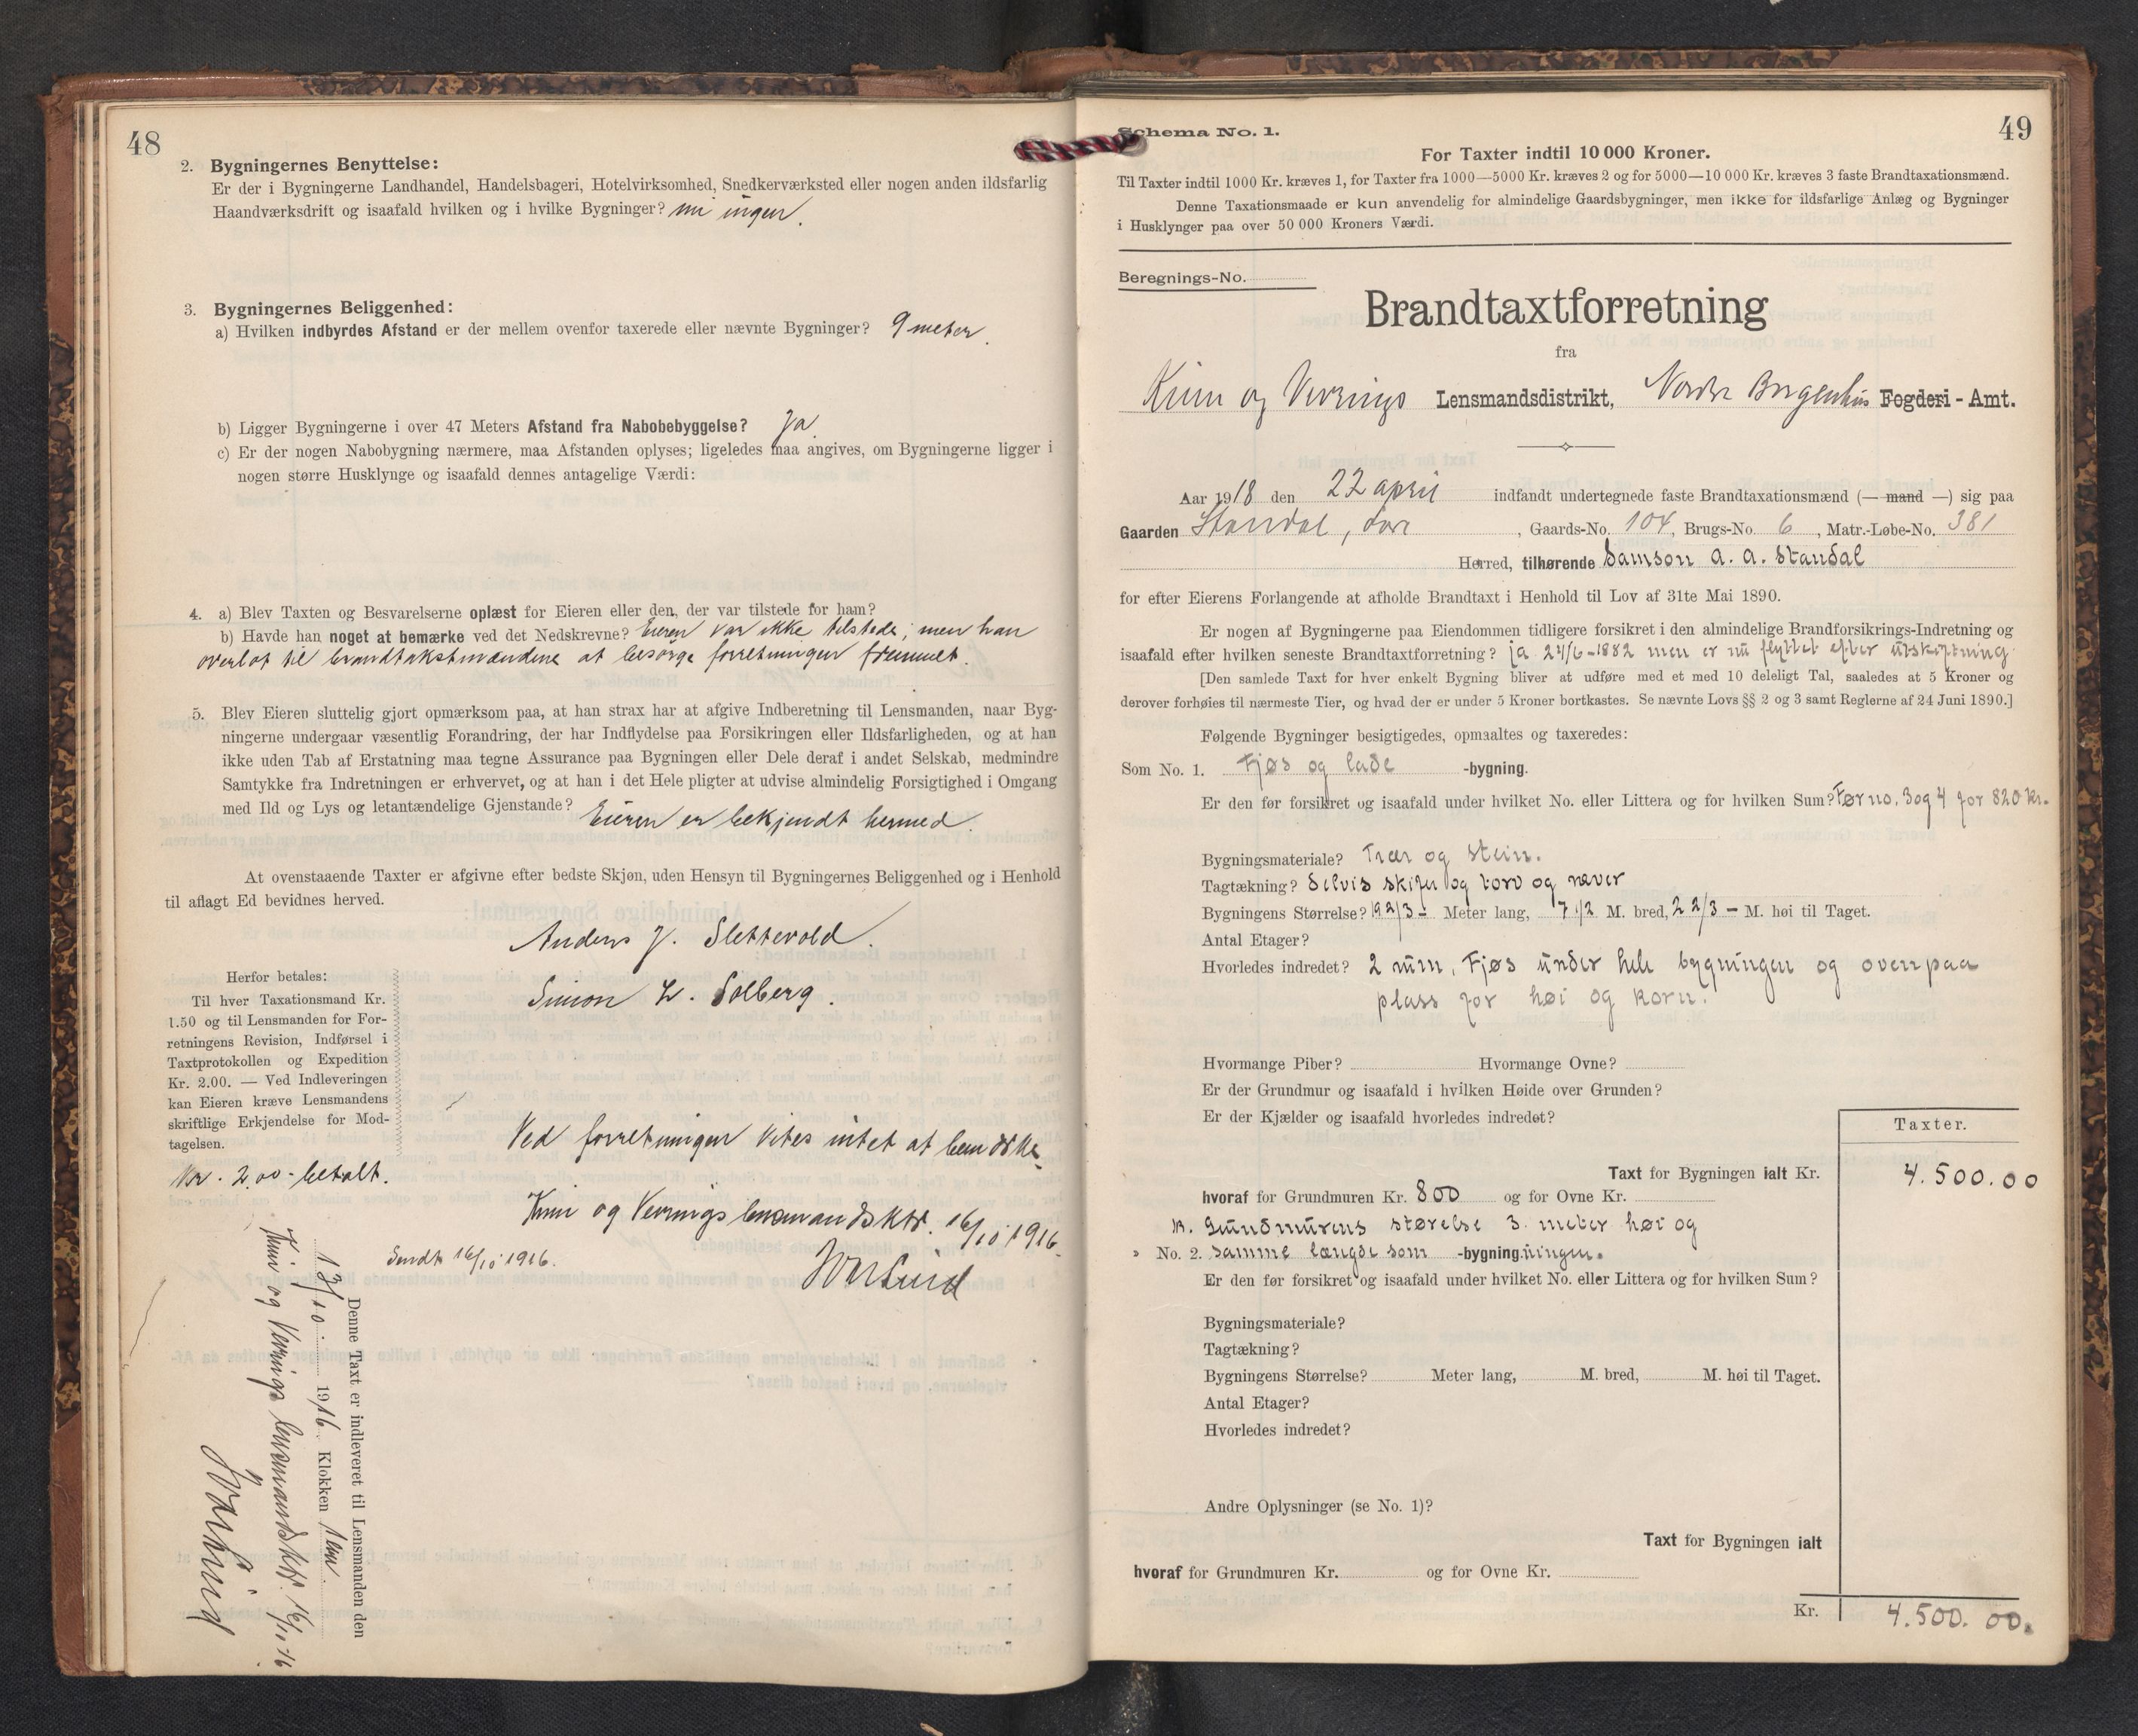 48
2. Bygningernes Benyttelse:
Er der i Bygningerne Landhandel, Handelsbageri, Hotelvirksomhed, Snedkerværksted eller nogen anden ildsfarlig
Haandværksdrift og isaafald hvilken og i hvilke Bygninger? ingen.
3. Bygningernes Beliggenhed:
a) Hvilken indbyrdes Afstand er der mellem ovenfor taxerede eller nævnte Bygninger? 9 meter.
b) Ligger Bygningerne i over 47 Meters Afstand fra Nabobebyggelse? Ja.
c) Er der nogen Nabobygning nærmere, maa Afstanden oplyses; ligeledes maa angives, om Bygningerne ligger i
nogen større Husklynge og isaafald dennes antagelige Værdi:
4. a) Blev Taxten og Besvarelserne oplæst for Eieren eller den, der var tilstede for ham?
b) Havde han noget at bemærke ved det Nedskrevne? Eieren var ikke tilstede; men han
overlot til brandtakstmændene at besørge forretningen fremmet.
5. Blev Eieren sluttelig gjort opmærksom paa, at han strax har at afgive Indberetning til Lensmanden, naar Byg-
ningerne undergaar væsentlig Forandring, der har Indflydelse paa Forsikringen eller Ildsfarligheden, og at han
ikke uden Tab af Erstatning maa tegne Assurance paa Bygningen eller Dele deraf i andet Selskab, medmindre
Samtykke fra Indretningen er erhvervet, og at han i det Hele pligter at udvise almindelig Forsigtighed i Omgang
med Ild og Lys og letantændelige Gjenstande? Eieren er bekjendt hermed.
At ovenstaaende Taxter er afgivne efter bedste Skjøn, uden Hensyn til Bygningernes Beliggenhed og i Henhold
til aflagt Ed bevidnes herved.
Anders J. Slettevold.
Simon L. Solberg.
Herfor betales:
Til hver Taxationsmand Kr.
1.50 og til Lensmanden for For-
retningens Revision, Indførsel i
Taxtprotokollen og Expedition
Kr. 2.00. — Ved Indleveringen
kan Eieren kræve Lensmandens
skriftlige Erkjendelse for Mod-
tagelsen.
Kr. 2.00 betalt.
Ved forretningen vites intet at bemærke.
Kinn og Vevrings lensmandsktr. 16/10 1916.
Sendt 16/10 1916.
Denne Taxt er indleveret til Lensmanden den
13/10 1916 Klokken
Kinn og Vevrings lensmandsktr. 16/10-16
49
Schema No. 1.
For Taxter indtil 10 000 Kroner.
Til Taxter indtil 1000 Kr. kræves 1, for Taxter fra 1000—5000 Kr. kræves 2 og for 5000—10 000 Kr. kræves 3 faste Brandtaxationsmænd.
Denne Taxationsmaade er kun anvendelig for almindelige Gaardsbygninger, men ikke for ildsfarlige Anlæg og Bygninger
i Husklynger paa over 50 000 Kroners Værdi.
Beregnings-No.
Brandtaxtforretning
fra
Kinn og Vevrings Lensmandsdistrikt, Nordre Bergenhus Fogderi - Amt.
Aar 1918 den 22 april indfandt undertegnede faste Brandtaxationsmænd (— mand —) sig paa
Gaarden Standal, , Gaards-No. 104, Brugs-No. 6, Matr.-Løbe-No. 381
Herred, tilhørende Samson A. A. Standal
for efter Eierens Forlangende at afholde Brandtaxt i Henhold til Lov af 31te Mai 1890.
Er nogen af Bygningerne paa Eiendommen tidligere forsikret i den almindelige Brandforsikrings-Indretning og
isaafald efter hvilken seneste Brandtaxtforretning? ja 21/6-1882 men er nu flyttet efter utskiftning
[Den samlede Taxt for hver enkelt Bygning bliver at udføre med et med 10 deleligt Tal, saaledes at 5 Kroner og
derover forhøies til nærmeste Tier, og hvad der er under 5 Kroner bortkastes. Se nævnte Lovs §§ 2 og 3 samt Reglerne af 24 Juni 1890.]
Følgende Bygninger besigtigedes, opmaaltes og taxeredes:
Som No. 1. Fjøs og lade -bygning.
Er den før forsikret og isaafald under hvilket No. eller Littera og for hvilken Sum? Før no. 3 og 4 for 820 kr.
Bygningsmateriale? Trær og stein.
Tagtækning? Delvis skifer og torv og næver
Bygningens Størrelse? 19 2/3 - Meter lang, 7 1/2 M. bred, 2 2/3 - M. høi til Taget.
Antal Etager?
Hvorledes indredet? 2 rum, Fjøs under hele bygningen og ovenpaa
plass for høi og korn.
Hvormange Piber? Hvormange Ovne?
Er der Grundmur og isaafald i hvilken Høide over Grunden?
Er der Kjælder og isaafald hvorledes indredet?
Taxter.
Taxt for Bygningen ialt Kr. 4.500.00
hvoraf for Grundmuren Kr. 800 og for Ovne Kr.
Grundmurens størelse 3 meter høi og
No. 2. samme længde som -bygningningen.
Er den før forsikret og isaafald under hvilket No. eller Littera og for hvilken Sum?
Bygningsmateriale?
Tagtækning?
Bygningens Størrelse? Meter lang, M. bred, M. høi til Taget.
Antal Etager?
Hvorledes indredet?
Andre Oplysninger (se No. 1)?
Taxt for Bygningen ialt
hvoraf for Grundmuren Kr. og for Ovne Kr.
Kr. 4.500.00.